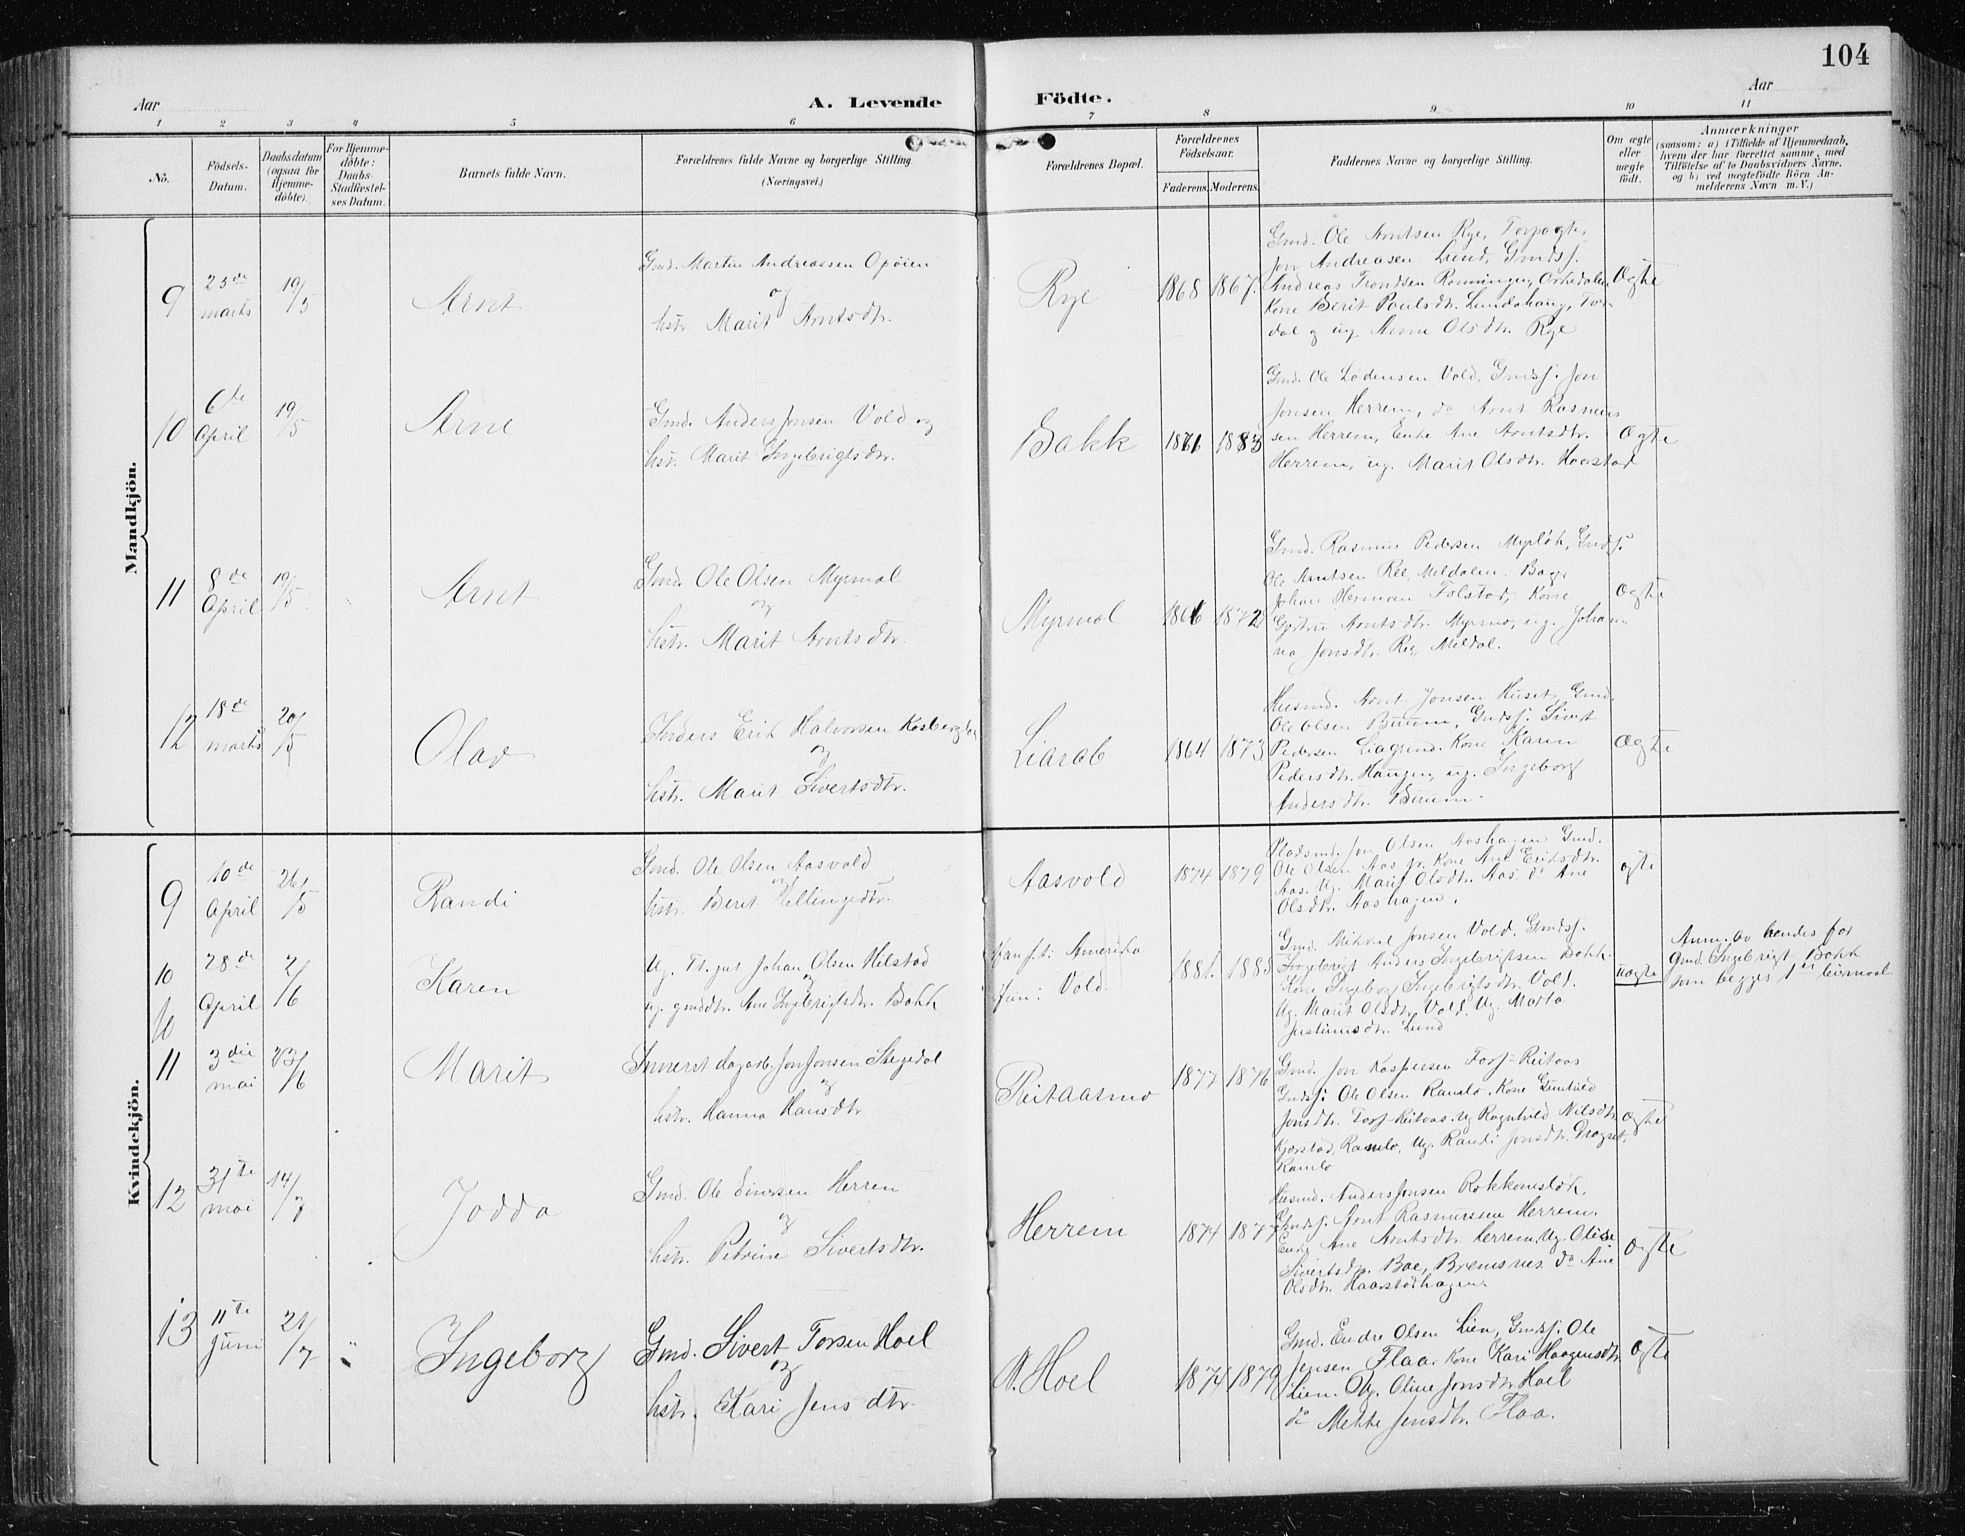 104
Aar
A. Levende
Födte.
Aar
1 2 3 4 5 6 7 8 9 10 11
No.
Födsels-
Datum.
Daabsdatum
(ogsaa for
Hjemme-
døbte).
For Hjemme-
døbte:
Daabs-
Stadfæstel-
ses Datum.
Barnets fulde Navn.
Forældrenes fulde Navne og borgerlige Stilling.
(Næringsvei.)
Forældrenes Bopæl.
Forældrenes
Födselsaar.
Faderens.
Moderens.
Faddernes Navne og borgerlige Stilling.
Om ægte
eller
uægte
födt.
Anmærkninger
(saasom: a) i Tilfælde af Hjemmedaab,
hvem der har forrettet samme, med
Tilföielse af to Daabsvidners Navne,
og b) ved uægtefödte Börn An-
melderens Navn m. V.)
Mandkjön.
9
25de
marts
19/5
Arnt
Gmd. Martin Andreassen Opöien
og
hstr. Marit Arntsdtr.
Rye
1868
1867.
Gmd. Ole Arntsen Rye, Forpagter
Jon Andreasen Lund, Gmdsf.
Andreas Trondsen Rønningen, Orkedalen
Kone Berit Paulsdtr. Lundahaug, For-
dal og ug. Anne Olsdtr. Rye
Ægte
10
6te
April
19/5
Arne
Gmd. Anders Jonsen Vold og
hstr. Marit Ingebrigtsdtr.
Bakk
1883
Gmd. Ole Lodensen Vold, Gmdsf. Jon
Jonsen Herrem, do Arnt Rasmus
sen Herrem, Enke Ane Arntsdtr.
Herrem, ug. Marit Olsdtr. Haarstad
Ægte
11
8de
April
19/5
Arnt
Gmd. Ole Olsen Myrmol
og
hstr. Marit Arntsdtr.
Myrmol
1872
Gmd. Rasmus Pedersen Myrløk, Gmdsf.
Ole Arntsen Ree, Meldalen. Bag.
Johan Herman Folstad, Kone
Gjertru Arntsdtr. Myrmo, ug. Johan-
na Jonsdtr. Ree, Meldal.
Ægte
12
18de
marts
20/5
Olav
Inders Erik Halvorsen Kosberglø
og
hstr. Marit Sivertsdtr.
Liarab
1864
1873
Husmd. Arnt Jonsen Huset, Gmd.
Ole Olsen Buum, Gmdsf. Sivert
Pedersen Liagrind. Kone Karen
Pedersdtr. Haugen, ug. Ingeborg
Andersdtr. Buum.
Ægte
Kvindekjön.
9
10de
April
26/5
Randi
Gmd. Ole Olsen Aasvold
og
hstr. Beret Hellingsdtr.
Aasvold
1874
1879
Pladsmd. Jon Olsen Aashagen Gmd.
Ole Olsen Aas, Kone Ane Eriksdtr.
Aas. Ug. Marit Olsdtr. Aas. do Ane
Olsdtr. Aashagen.
ægte
10
28de
April
2/6
10
Karen
Ug. Th. gut Johan Olsen Hilstad
og
ug. gmddtr. Ane Ingebrigtsdtr. Bakk
Han f.t. Amerika
hun: Vold
1881.
1885
Gmd. Mikael Jonsen Vold, Gmdsf.
Ingebrigt Anders Ingebrigtsen Bakk.
Kone Ingeborg Ingebrigtsdtr. Vold.
Ug. Marit Olsdtr. Vold. Ug. Marta
Justinusdtr. Lund
uægte
Anm. av hendes far
Gmd. Ingebrigt Bakk
som begges 1ste leiermaal
11
3die
mai
23/6
Marit
Innerst dagarb. Jon Jonsen Stegedal
og
hstr. Hanna Hansdtr
Reitaasmo
1877
1876
Gmd. Jon Kaspersen Fors-Reitaas
Gmdsf: Ole Olsen Ramlo. Kone Gunhild
Jonsdtr. Fors-Reitaas. Ug Ragnhild Nilsdtr
Kjorstad, Ramlo. Ug. Randi Jonsdtr. Dragset,
Ramlo
Ægte
12
31te
mai
14/7
Jodda
Gmd. Ole Einersen Herrem
og
hstr. Petrine Sivertsdtr.
Herrem
1874
1877
Husmd. Anders Jonsen Rokkoneslök,
Gmdsf. Arnt Rasmussen Herrem.
Enke Ane Arntsdtr Herrem, Ug. Oline
Sivertsdtr. Boe, Bremsnes. do Ane
Olsdtr. Haarstadhagen.
Ægte
13
11te
Juni
21/7
Ingeborg
Gmd. Sivert Torsen Hoel
og
hstr. Kari Jensdtr.
N. Hoel
1874
1879
Gmd. Endre Olsen Lien, Gmdsf. Ole
Jensen Flaa. Kone Kari Haagensdtr
Lien. Ug. Oline Jonsdtr. Hoel
do Mette Jensdtr. Flaa.
Ægte